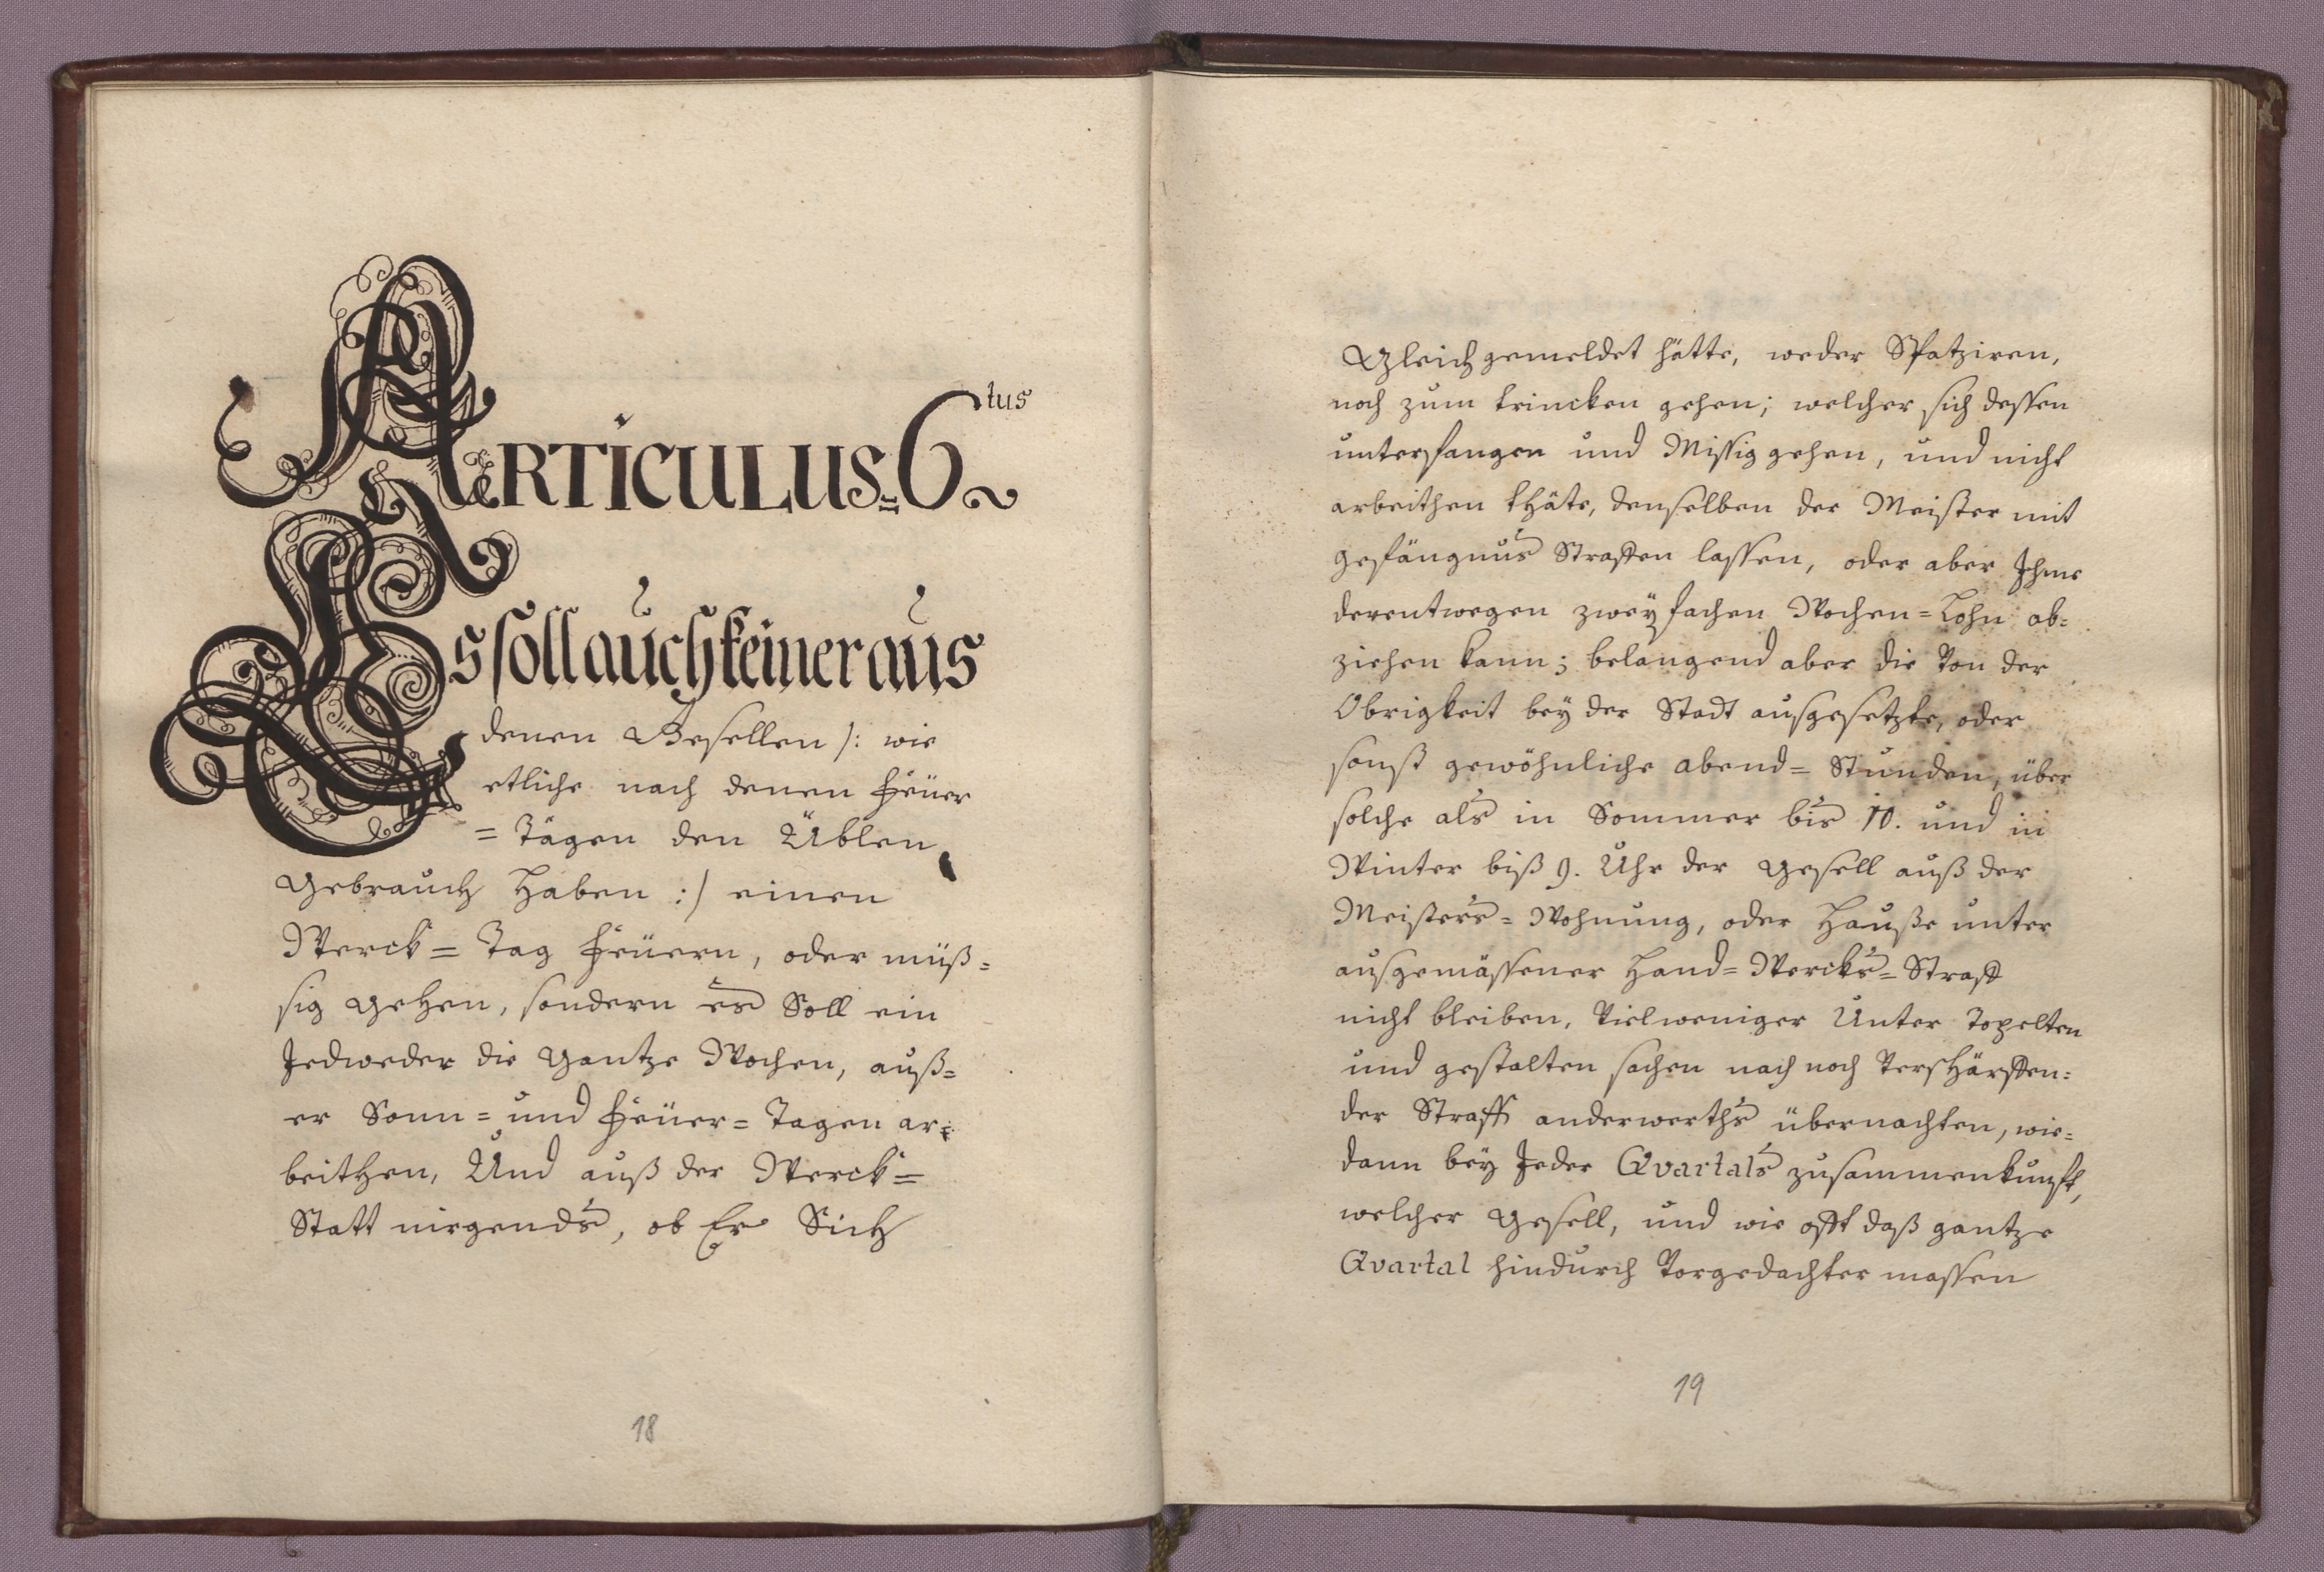 ARTICULUS=6tus
Es soll auch keiner aus
denen Gesellen /: wie
etliche nach denen Feüer
=Tägen den Üblen
gebrauch haben :/ einen
Werck=Tag Feüern, oder müß=
sig gehen, sondern es Soll ein
Jedweder die gantze Wochen, auß=
er Sonn= und Feüer=Tagen ar=
beithen, Und auß der Werck=
Statt nirgends, ob Er Sich
18
Gleich gemeldet hätte, weder Spatziren,
noch zum trincken gehen; welcher sich dessen
unterfangen und Missig gehen, und nicht
arbeithen thäte, denselben der Meister mit
gefängnus Straffen lassen, oder aber Ihme
derentwegen zweyfachen Wochen=Lohn ab=
ziehen kann; belangend aber die Von der
Obrigkeit bey der Stadt ausgesetzte, oder
sonst gewöhnliche abend=Stunden, über
solche als in Sommer bis 10. und in
Winter biß 9. Uhr der gesell auß der
Meisters=Wohnung, oder Hauße unter
ausgemässener Hand=Wercks=Straff
nicht bleiben, Vielweniger Unter Topelten
und gestalten sachen nach noch Verschärffen=
der Straff anderwerths übernachten, wie=
dann bey Jeder Qvartals zusammenkunfft,
welcher gesell, und wie offt daß gantze
Qvartal hindurch Vorgedachter massen
19